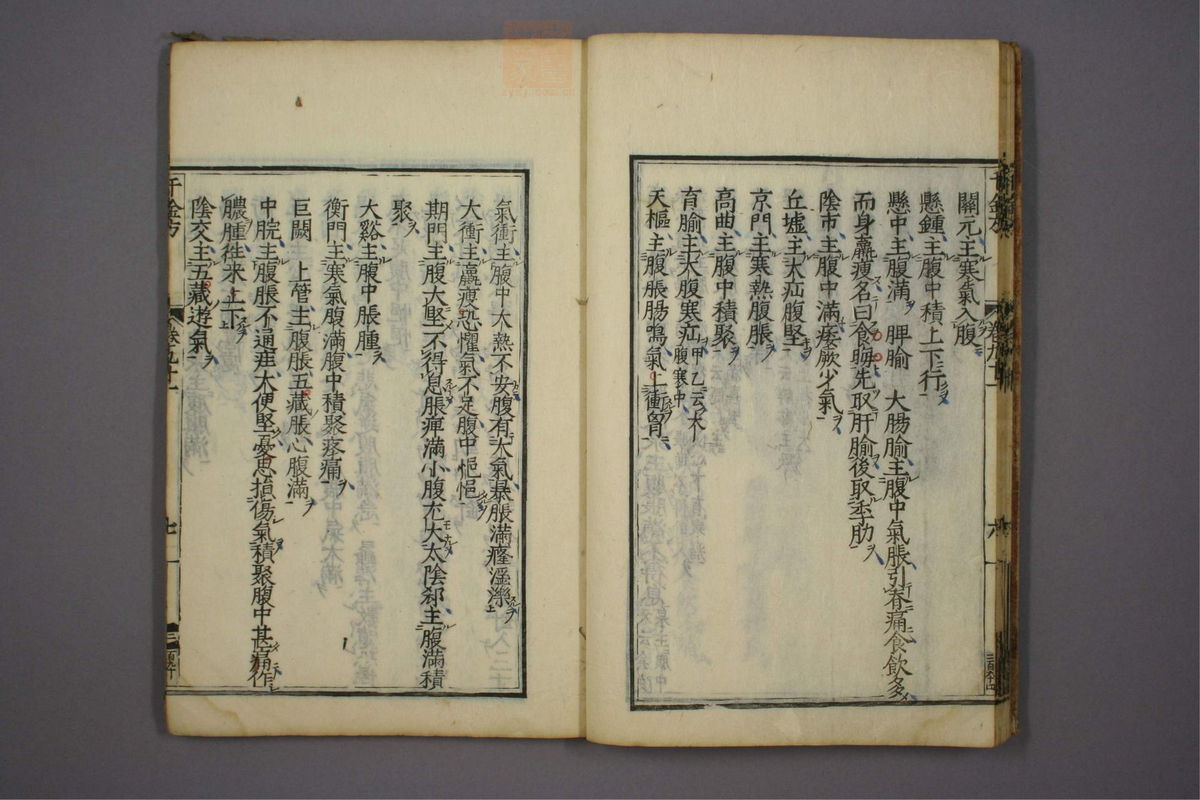 關元主寒氣入腹
懸鍾主腹中積上下行
懸中主腹滿 脾腧 大腸腧主腹中氣脹引脊痛食飲多
而身羸瘦名曰食晦先取肝腧後取季肋
陰市主腹中滿痿厥少氣
丘墟主大疝腹堅
京門主寒熱腹脹
高曲主腹中積聚
肓腧主大腹寒疝甲乙云木腹寒中
天樞主腹脹腸鳴氣上衝胷
千金方
卷九十一
六
氣衝主腹中大熱不安腹有大氣暴脹滿癃淫濼
大衝主羸瘦恐懼氣不足腹中悒悒
期門主腹大堅不得息脹痺滿小腹尤大太陰郄主腹滿積
聚
大谿主腹中脹腫
衝門主寒氣腹滿腹中積聚疼痛
巨闕 上管主腹脹五藏脹心腹滿
中脘主腹脹不通疰大便堅憂思損傷氣積聚腹中甚痛作
膿腫往來上下
陰交主五藏遊氣
千金方
卷九十一
七